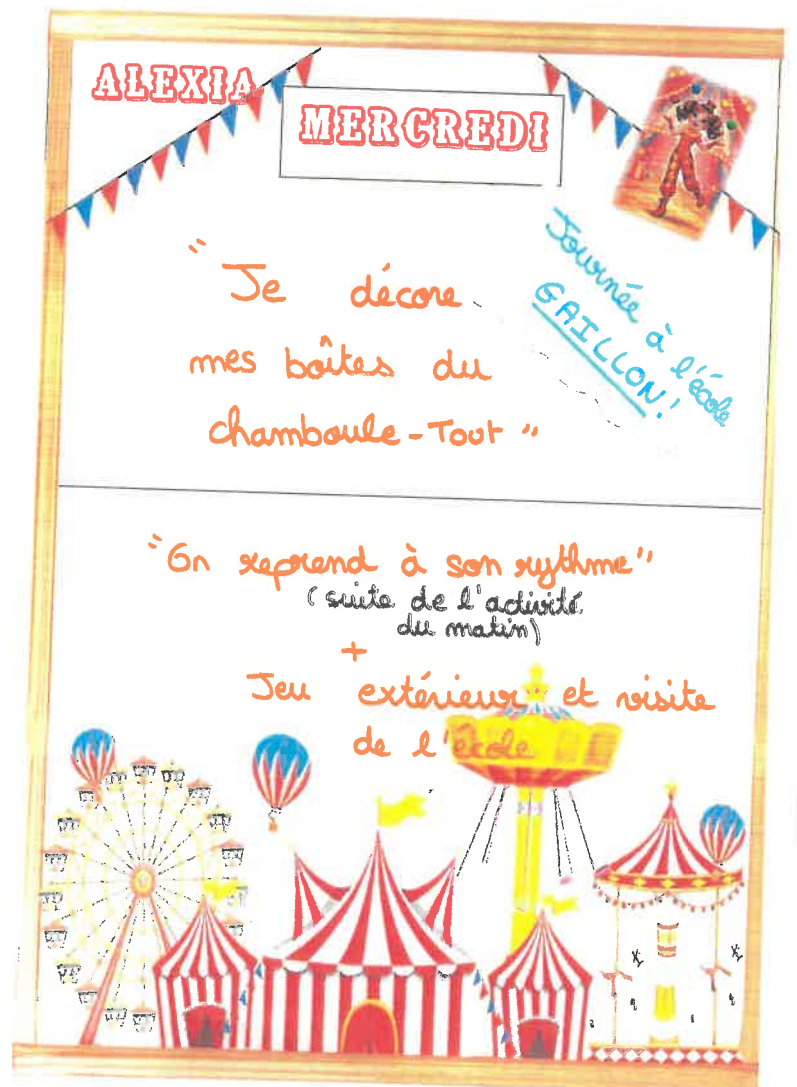 ALEXIA
MERCREDI
Journée à l'école
GAILLON!
" Je décore
mes boîtes du
chamboule-Tout "
"On reprend à son rythme"
(suite de l'activité
du matin)
+
Jeu extérieur et visite
de l'école